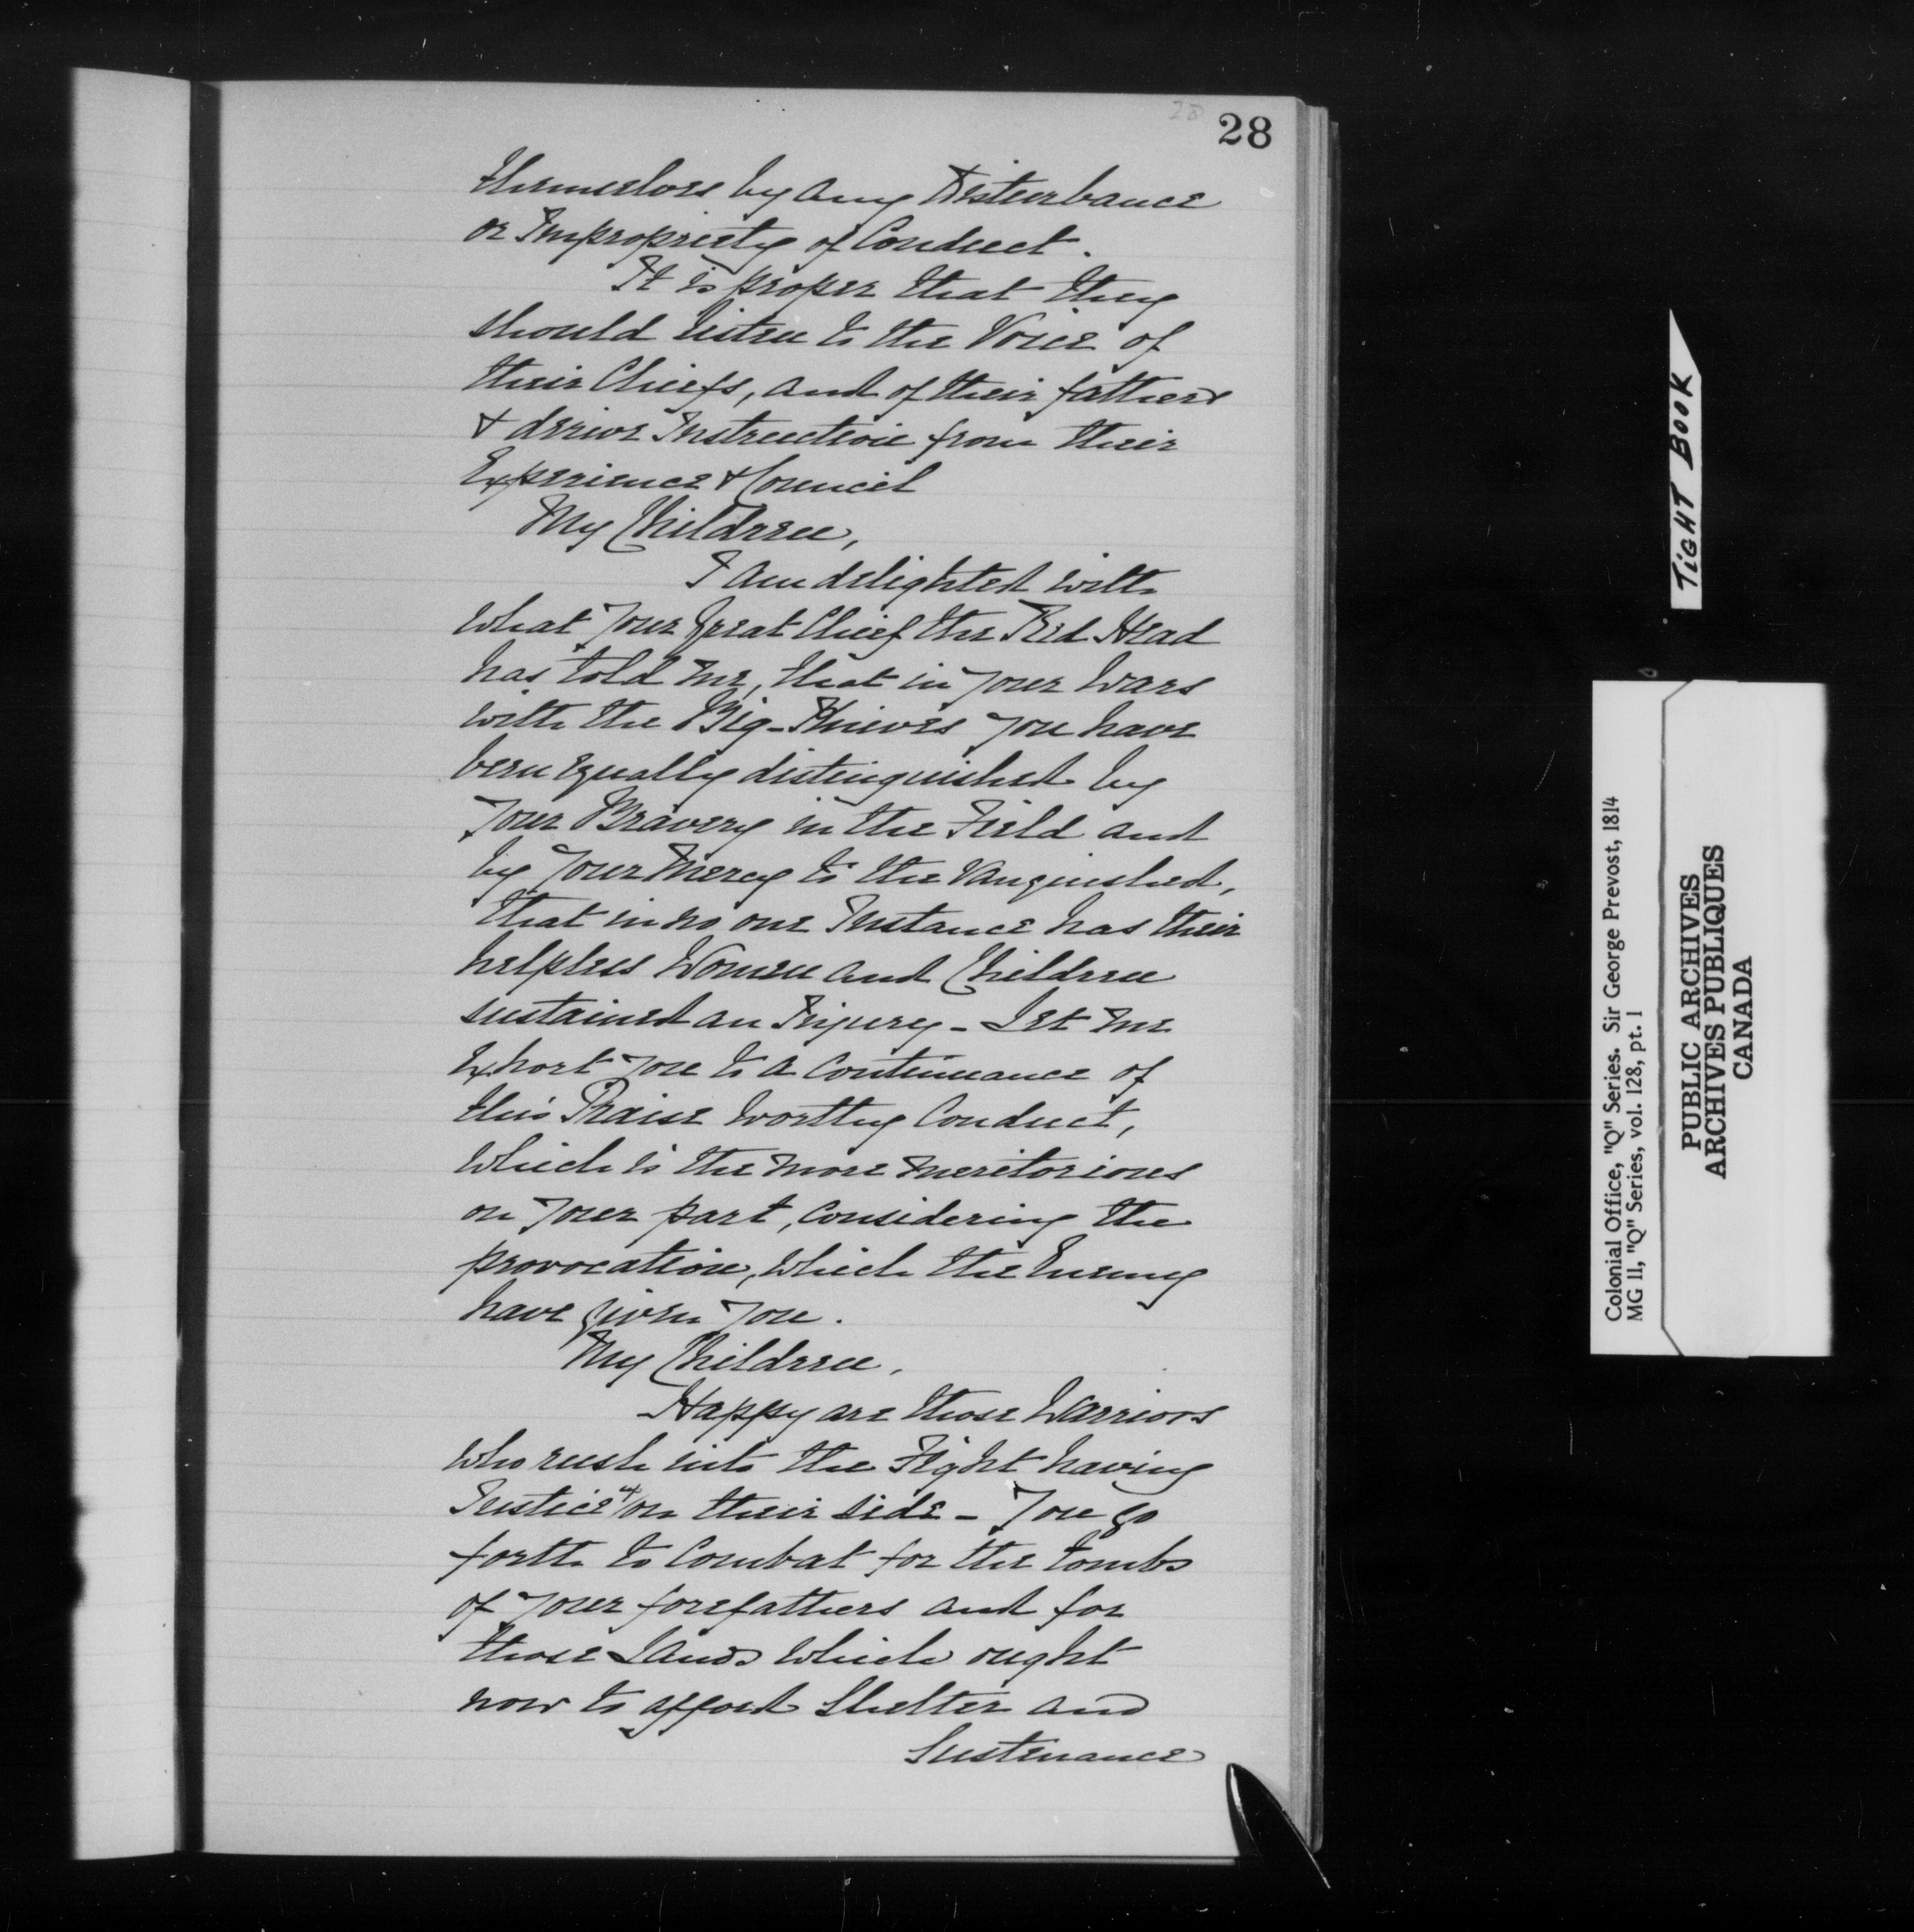 28
28
themselves by any Disturbance
or Impropriety of Conduct.
It is proper that they
should listen to the Voice of
their Chiefs, and of their fathers
& derive Instruction from their
Experience & Council
My Children,
I am delighted with
what your Great Chief the Red Head
has told me, that in your Wars
with the Big-Knives you have
been equally distinguished by
your Bravery in the Field and
by your Mercy to the Vanquished,
that in no one Instance has their
helpless Women and Children
sustained an Injury - Let me
Exhort you to a Continuance of
this Praise worthy Conduct,
which is the more meritorious
on your part, considering the
provocation, which the Enemy
have given you.
My Children,
Happy are those Warriors
who rush into the Fight having
Justice on their side - You go
forth to Combat for the tombs
of your forefathers and for
those Lands which ought
now to afford Shelter and
Sustenance
TIGHT BOOK
Colonial Office, "Q" Series. Sir George Prevost, 1814
MG 11, "Q" Series, vol. 128, pt. 1
PUBLIC ARCHIVES
ARCHIVES PUBLIQUES
CANADA